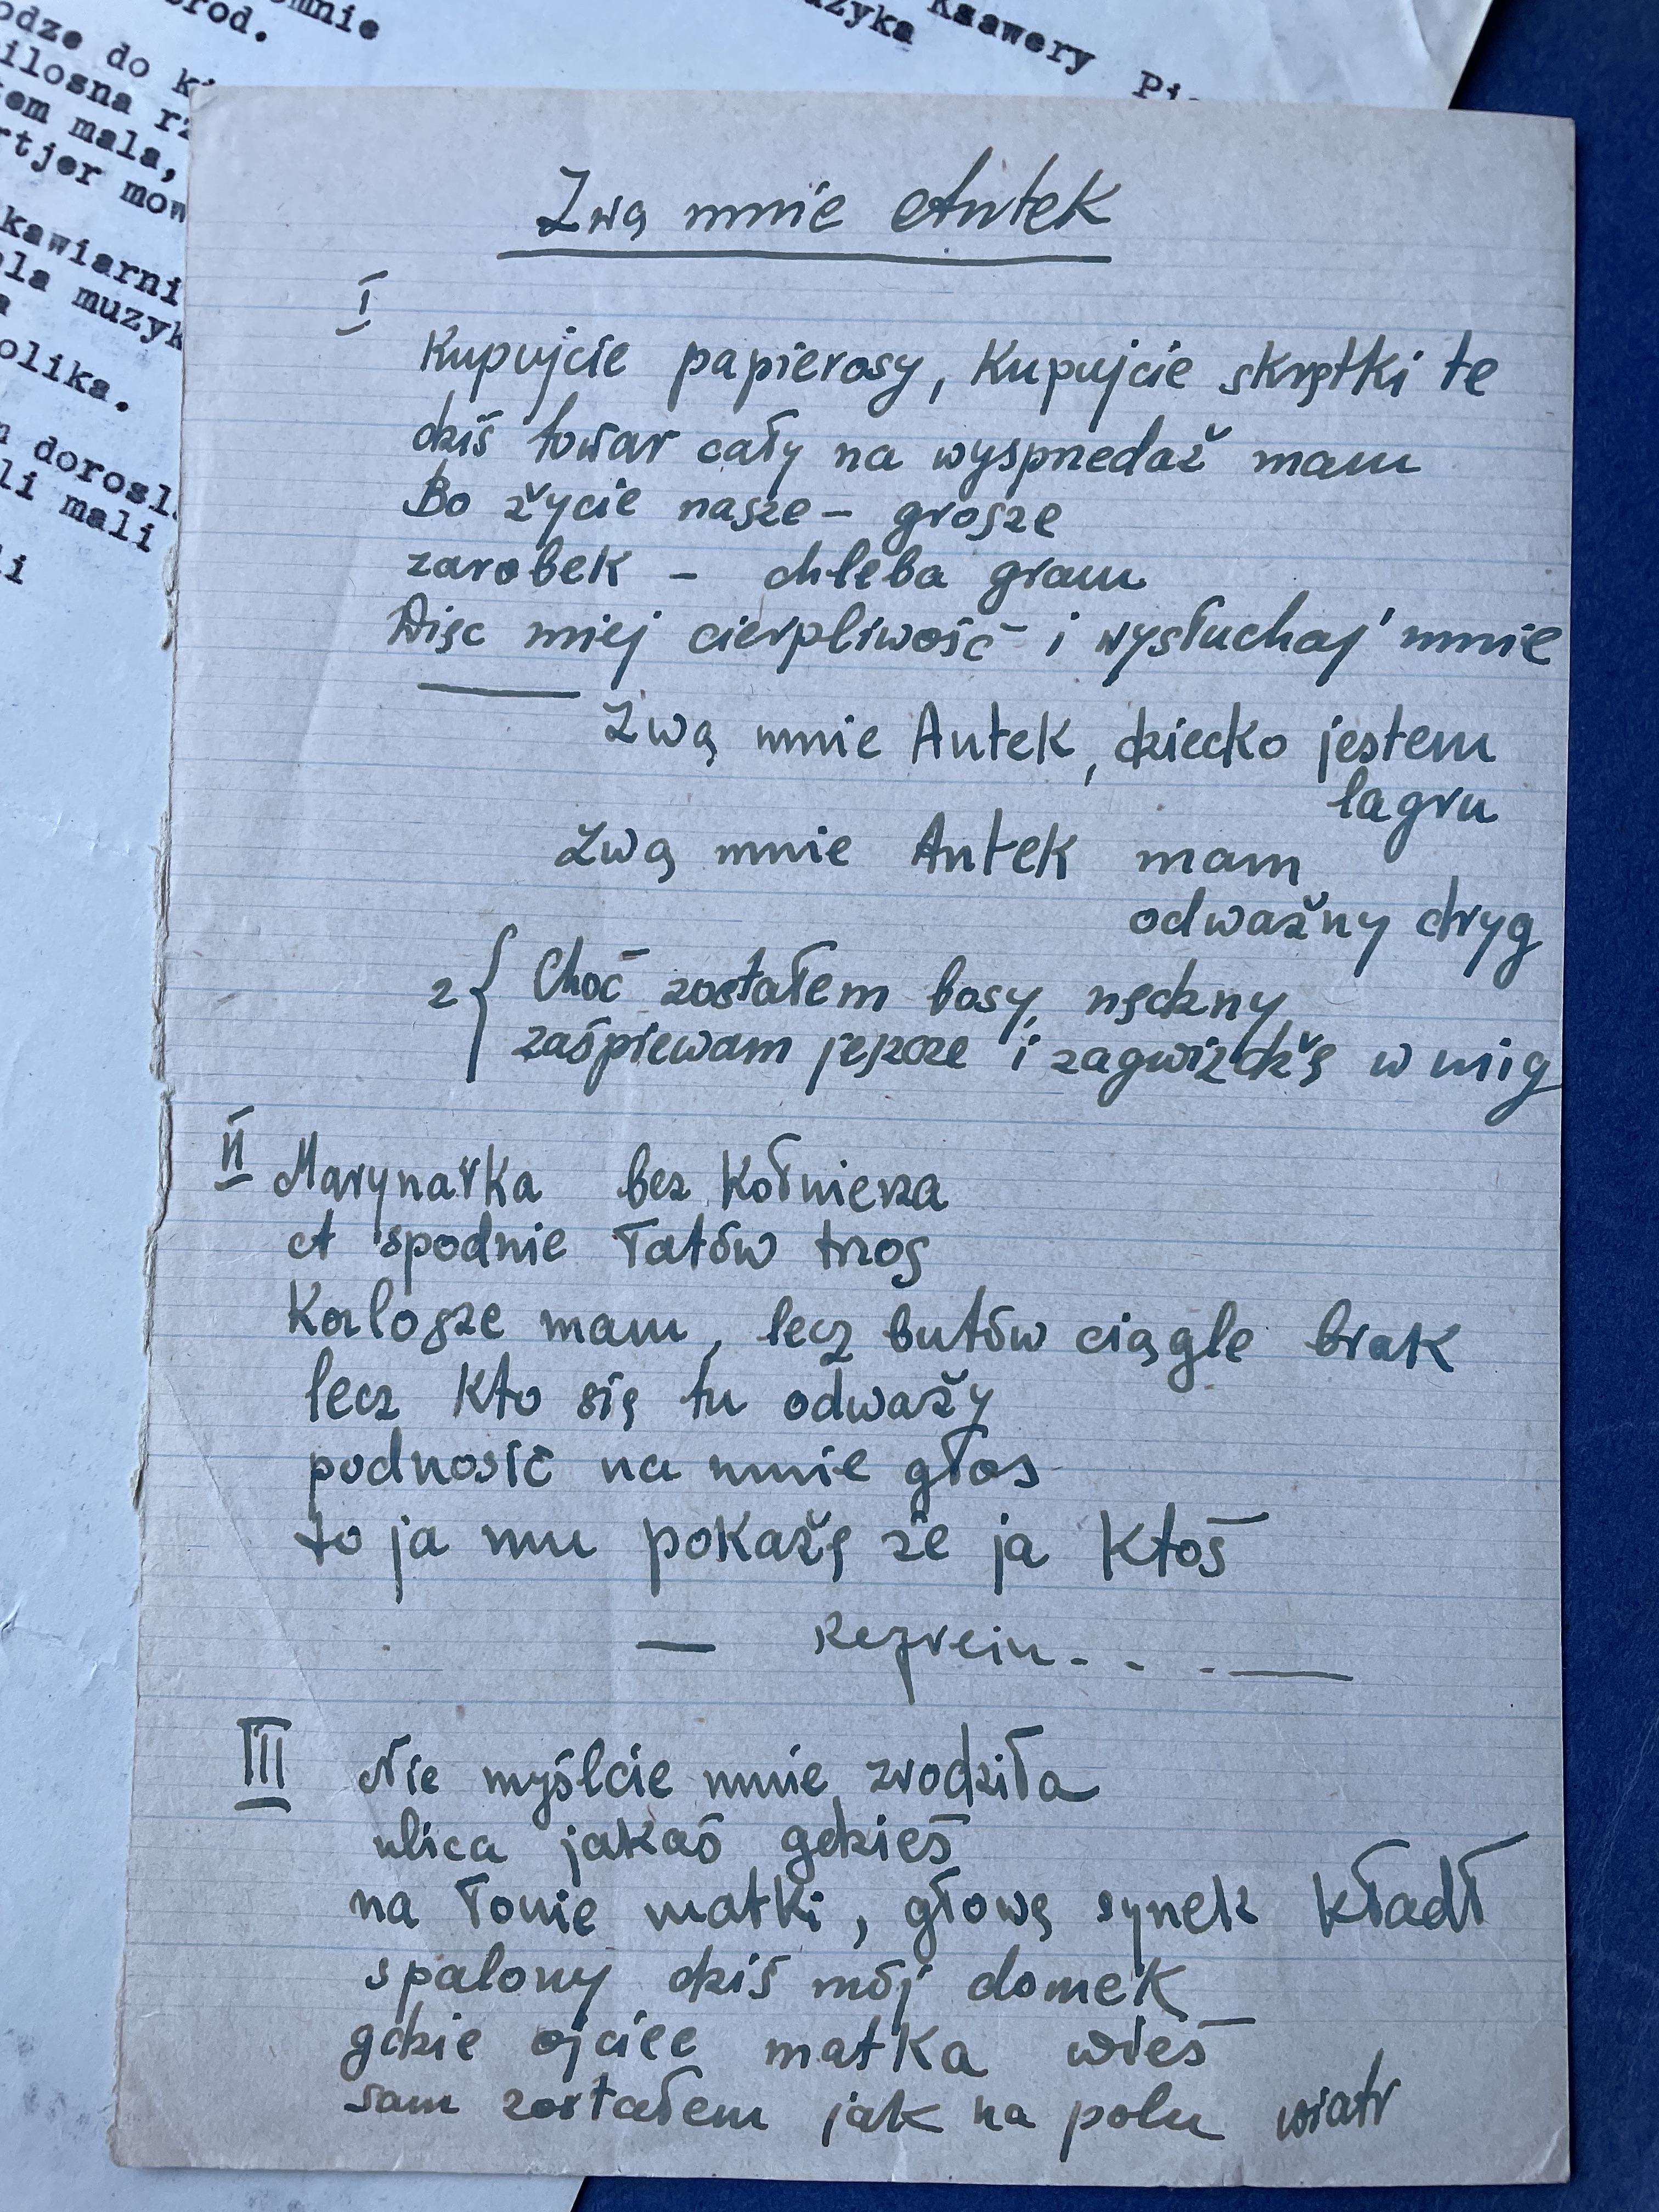 mnie
bród.
odze do
ilosna
em mala,
rtjer mow
kawiarni
ela muzyk
olika.
dorosl
li mali
li
Ksawery
zyka
Zwą mnie Antek
I
Kupujcie papierosy, Kupujcie skrętki te
dziś towar cały na wysprzedaż mam
Bo życie nasze – grosze
zarobek – chleba gram
Więc miej cierpliwość i wysłuchaj mnie
Zwą mnie Antek, dziecko jestem
lagru
Zwą mnie Antek mam
odważny dryg
2 { Choć zostałem bosy, nędzny
zaśpiewam jeszcze i zagwiżdżę w mig
II
Marynarka bez Kołnierza
A spodnie łatów trzos
Kalosze mam, lecz butów ciągle brak
lecz Kto się tu odważy
podnosić na mnie głos
to ja mu pokażę że ja Ktoś
— Refrein . . . —
III
Nie myślcie mnie zrodziła
ulica jakaś gdzieś
na łonie matki, głowę synek kładł
spalony dziś mój domek
gdzie ojciec matka wieś
sam zostałem jak na polu wiatr